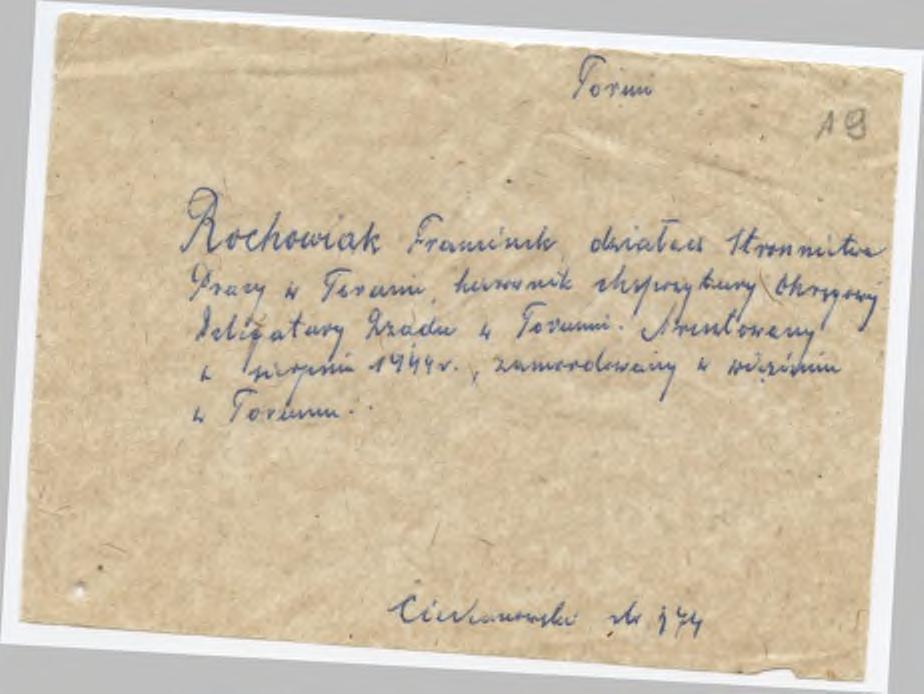 Toruń
19
Rochowiak Franciszek, działacz Stronnictwa
Pracy w Toruniu, kierownik ekspozytury Okręgowej
Delegatury Rządu w Toruniu. Aresztowany
w sierpniu 1944 r., zamordowany w więzieniu
w Toruniu.
Ciechanowski str 174